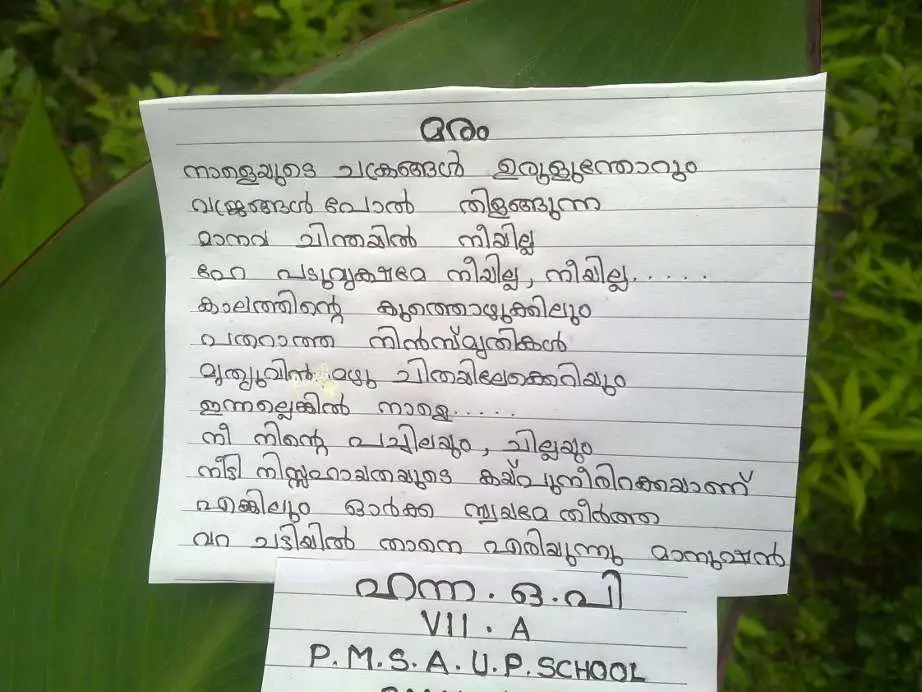 മരം
നാളെയുടെ ചക്രങ്ങൾ ഉരുളുന്തോറും
വജ്രങ്ങൾ പോൽ തിളങ്ങുന്ന
മാനവ ചിന്തയിൽ നീയില്ല
ഹേ പടുവൃക്ഷമേ നീയില്ല, നീയില്ല......
കാലത്തിന്റെ കുത്തൊഴുക്കിലും
പതറാത്ത നിൻസ്മൃതികൾ
മൃത്യുവിൻ മഴു ചിതയിലേക്കെറിയും
ഇന്നല്ലെങ്കിൽ നാളെ.....
നീ നിന്റെ പച്ചിലയും, ചില്ലയും
നീട്ടി നിസ്സഹായതയുടെ കയ്പുനീരിറക്കയാണ്
എങ്കിലും ഓർക്ക സ്വയമേ തീർത്ത
വറ ചട്ടിയിൽ താനെ എരിയുന്നു മാനുഷൻ
ഹന്ന. ഒ. പി
VII. A
P.M.S.A.U.P. SCHOOL